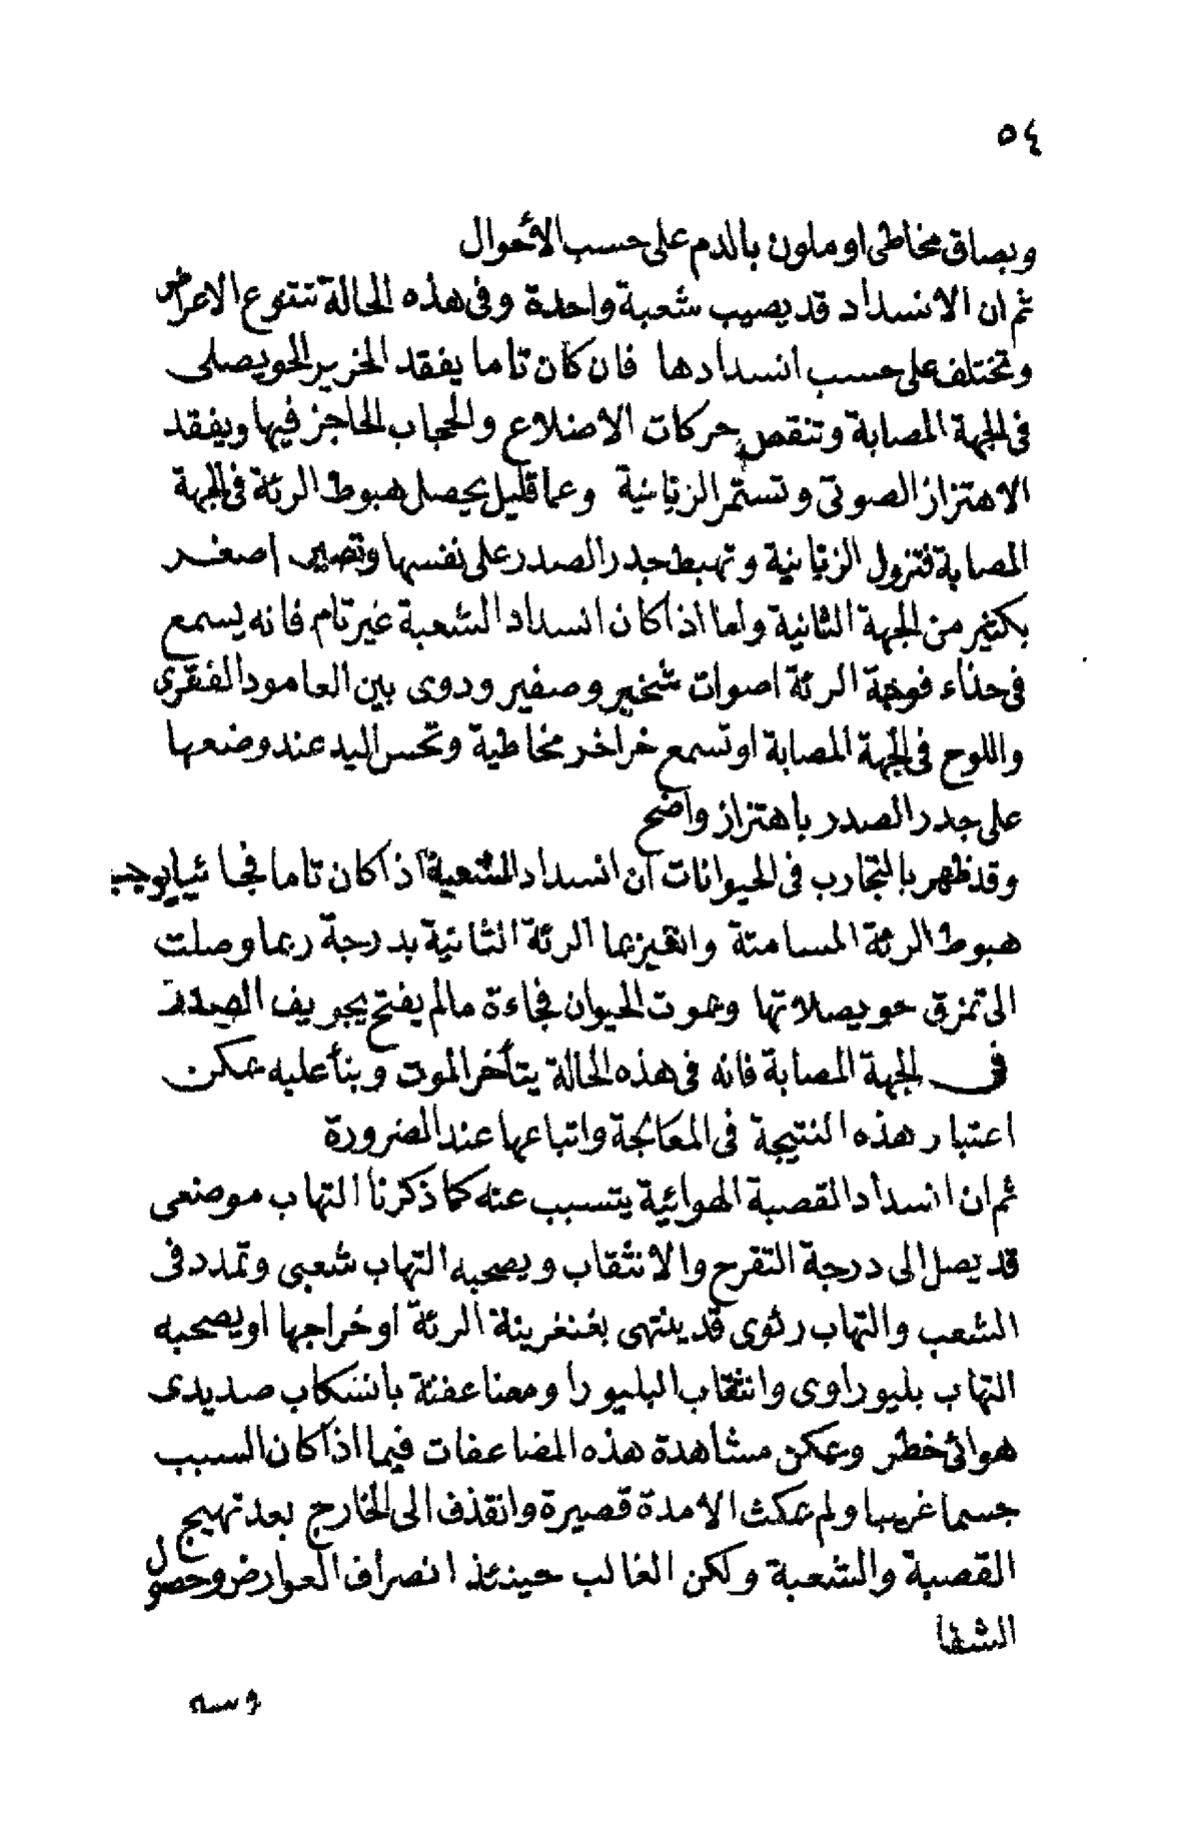 ٥٤
وبصاق مخاطى او ملون بالدم على حسب الأحوال
ثم ان الانسداد قد يصيب شعبة واحدة وفى هذه الحالة تتنوع الاعراض
وتختلف على حسب انسدادها فان كان تاما يفقد الخرير الحويصلى
فى الجهة المصابة وتنقص حركات الاضلاع والحجاب الحاجز فيها ويفقد
الاهتزاز الصوتى وتستمر الرنانية وعما قليل يحصل هبوط الرئة فى الجهة
المصابة فتزول الرنانية وتهبط جدر الصدر على نفسها وتصير اصغر
بكثير من الجهة الثانية واما اذا كان انسداد الشعبة غير تام فانه يسمع
فى حذاء فوهة الرئة اصوات شخير وصفير ودوى بين العامود الفقرى
واللوح فى الجهة المصابة او تسمع خراخر مخاطية وتحس اليد عند وضعها
على جدر الصدر باهتزاز واضح
وقد ظهر بالتجارب فى الحيوانات أن انسداد الشعبة اذا كان تاما فجائيا يوجب
هبوط الرئة المسامتة الرئة الثانية بدرجة ربما وصلت
الى تمزق حويصلاتها وبموت الحيوان فجاءة مالم يفتح تجويف الصدر
فى الجهة المصابة فانه فى هذه الحالة يتأخر الموت وبنأ عليه يمكن
اعتبار هذه النتيجة فى المعالجة واتباعها عند الضرورة
ثم ان انسداد القصبة الهوائية يتسبب عنه كما ذكرنا التهاب موضعى
قد يصل الى درجة التقرح والانثقاب ويصحبه التهاب شعبى وتمدد فى
الشعب والتهاب رئوى قد ينتهى بغنغرينة الرئة او خراجها او يصحبه
التهاب بليوراوى وانثقاب البليورا ومضاعفة بانسكاب صديدى
هوائى خطر ويمكن مشاهدة هذه المضاعفات فيما اذا كان السبب
جسما غريبا ولم يمكث الا مدة قصيرة وانقذف الى الخارج بعد تهييج
القصبة والشعبة ولكن الغالب حينئذ انصراف العوارض وحصول
الشفا